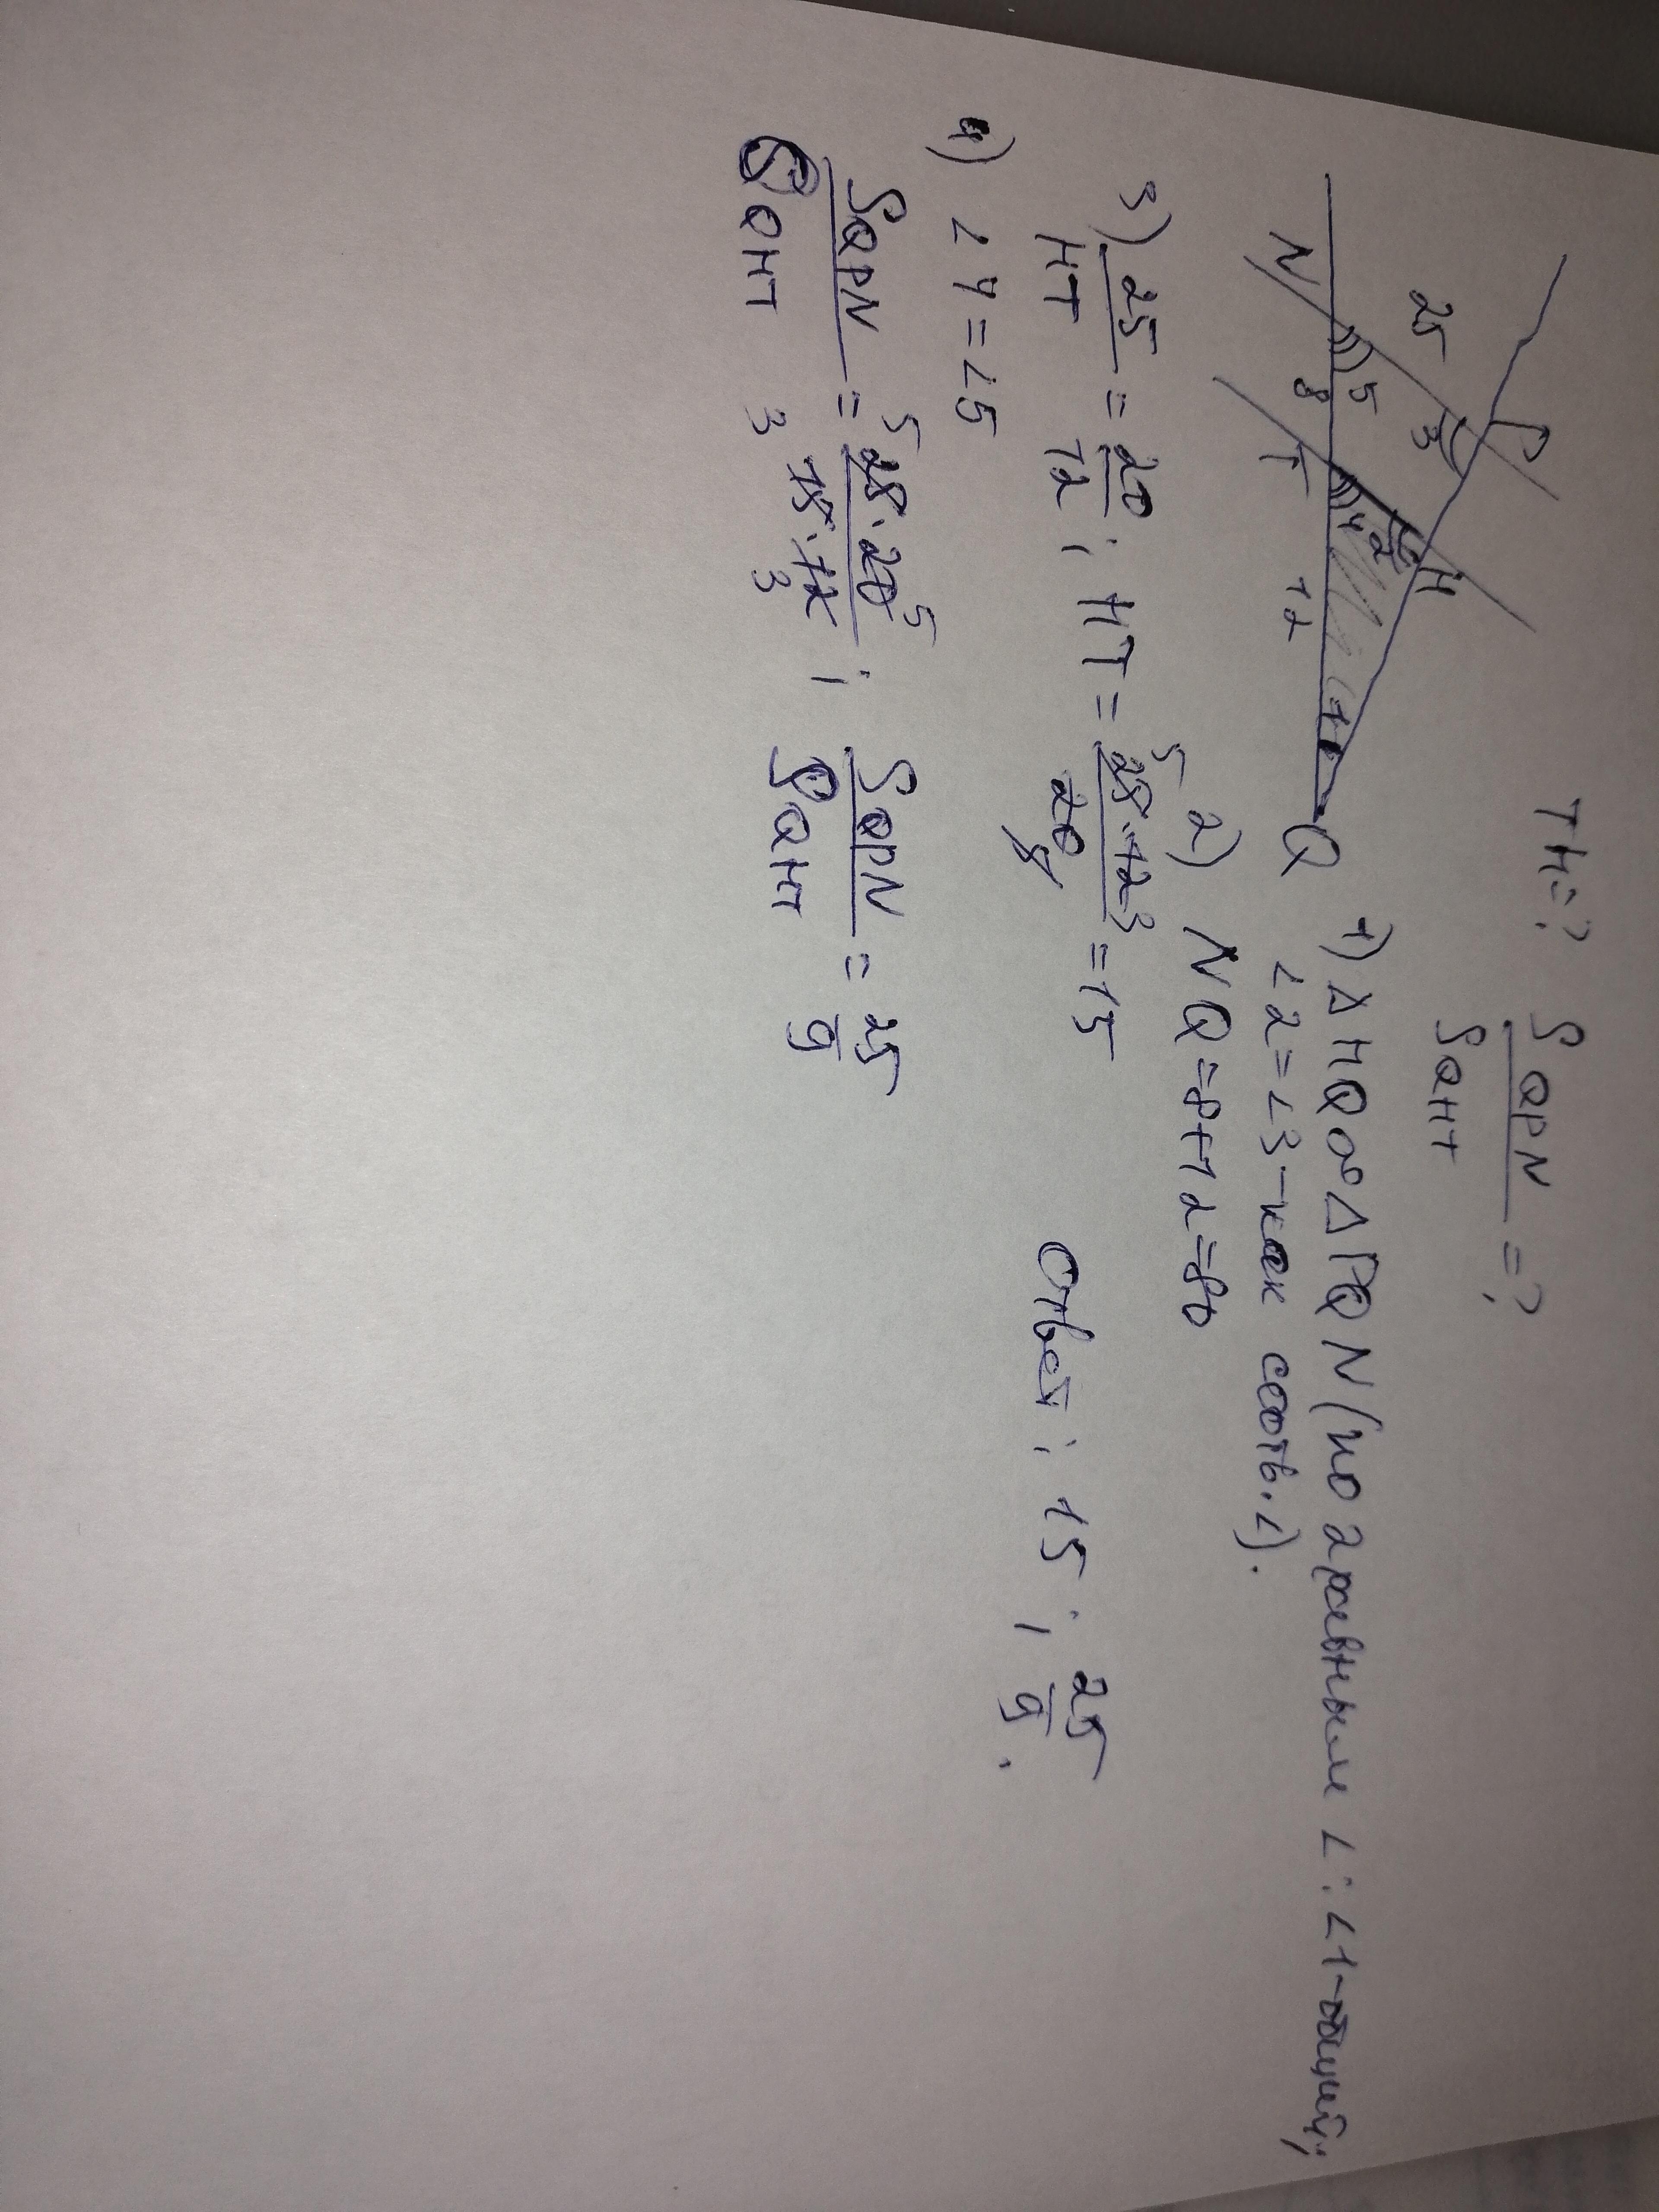 TH=? SQPN/SQHT =?
P
25
3
H
2
N
5
8
T
4
12
1
Q
1) ∆HQT∾∆PQN (по 2 равным ∠: ∠1-общий;
∠2=∠3-как соотв.∠).
2) NQ=8+12=20
3) 25/HT = 20/12; HT = 25·12/20 = 15
4) ∠4=∠5
SQPN/SQHT = 25·20/15·12; SQPN/SQHT = 25/9
Ответ: 15; 25/9.